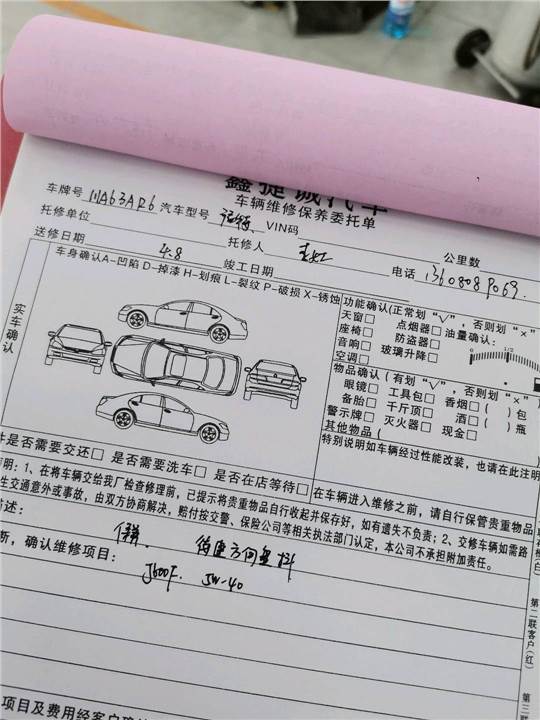 鑫捷诚汽车
车辆维修保养委托单
车牌号 川A63AR6 汽车型号 VIN码
托修单位 托修人 公里数
送修日期 4.8 竣工日期 电话 1360808P069
车身确认A-凹陷 D-掉漆 H-划痕 L-裂纹 P-破损 X-锈蚀
实车确认
功能确认(正常划“√”，否则划“×”
天窗□ 点烟器□ 油量确认:
座椅□ 防盗器□
音响□ 玻璃升降□
空调□
1/2
物品确认（有划“√”，否则划“×”
眼镜□ 工具包□ 香烟□( )包
备胎□ 千斤顶□ 酒□( )瓶
警示牌□ 灭火器□ 现金□
其他物品(
特别说明如车辆经过性能改装，也请在此注明
件是否需要交还□ 是否需要洗车□ 是否在店等待□
声明：1、在将车辆交给我厂检查修理前，已提示将贵重物品自行收起并保存好，如有遗失不负责；2、交修车辆如需路
生交通意外或事故，由双方协商解决，赔付按交警、保险公司等相关执法部门认定，本公司不承担附加责任。
在车辆进入维修之前，请自行保管贵重物品
描述：
保养. 待速方向盘抖
断，确认维修项目：
J600F. 5W-40
(白)
第二联客户(红)
第三联
项目及费用经客户确